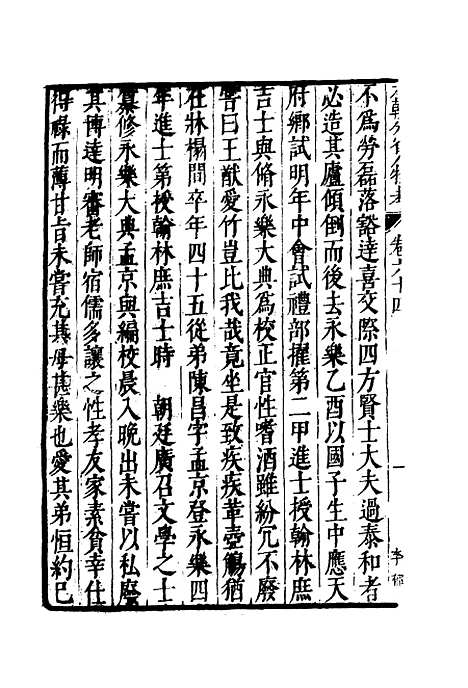 本朝分省人物考 卷六十四 一
不爲勞磊落豁達喜交際四方賢士大夫過泰和者
必造其廬傾倒而後去永樂乙酉以國子生中應天
府鄉試明年中會試禮部擢第二甲進士授翰林庶
吉士與脩永樂大典爲校正官性嗜酒雖紛冗不廢
嘗曰王猷愛竹豈比我哉竟坐是致疾疾革壺觴猶
在牀榻間卒年四十五從弟陳昌字孟京登永樂四
年進士第授翰林庶吉士時 朝廷廣召文學之士
纂修永樂大典孟京與編校晨入晚出未嘗以私廢
其博達明審老師宿儒多讓之性孝友家素貧幸仕
得祿而薄甘旨未嘗充其母甚樂也愛其弟恒約已